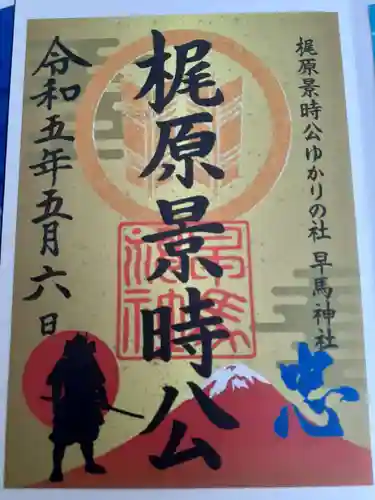 梶原景時公ゆかりの社 早馬神社
忠
梶原景時公
早馬神社
令和五年五月六日